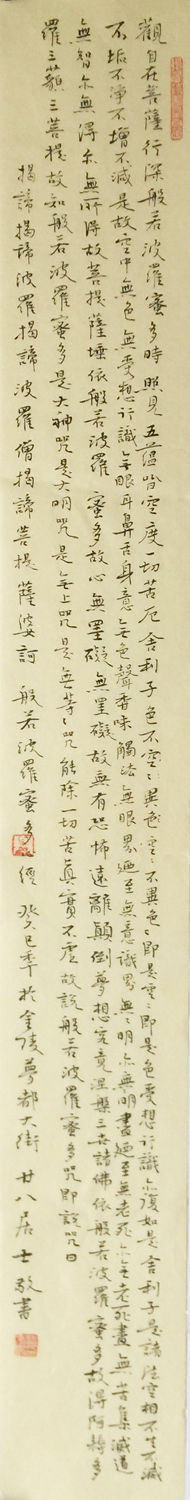 觀自在菩薩行深般若波羅蜜多時照見五蘊皆空度一切苦厄舍利子色不空〻異色空〻不異色〻即是空〻即是色受想行識亦復如是舍利子是諸法空相不生不滅
不垢不淨不增不減是故空中無色無受想行識無眼耳鼻舌身意無色聲香味觸法無眼界迺至無意識界無〻明亦無明盡迺至無老死亦無老死盡無苦集滅道
無智亦無得亦無所得故菩提薩埵依般若波羅蜜多故心無罣礙無罣礙故無有恐怖遠離顛倒夢想究竟涅槃三世諸佛依般若波羅蜜多故得阿耨多
羅三藐三菩提故知般若波羅蜜多是大神咒是大明咒是無上咒是無等〻咒能除一切苦真實不虛故說般若波羅蜜多咒即說咒曰
揭諦揭諦波羅揭諦波羅僧揭諦菩提薩婆訶 般若波羅蜜多心經 癸巳年於金陵夢都大街廿八居士敬書